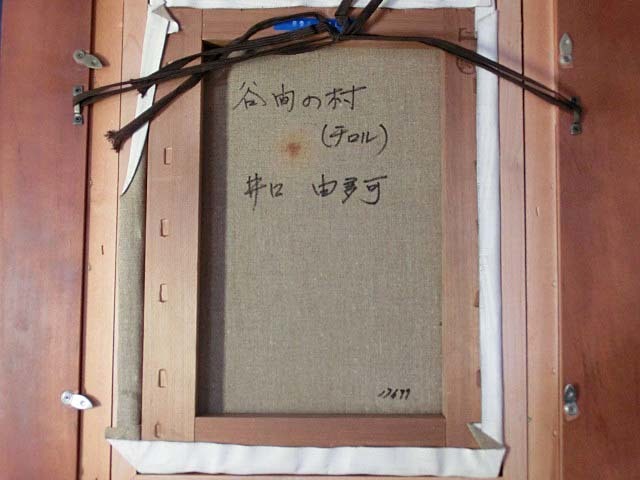 谷間の村
(チロル)
井口 由多可